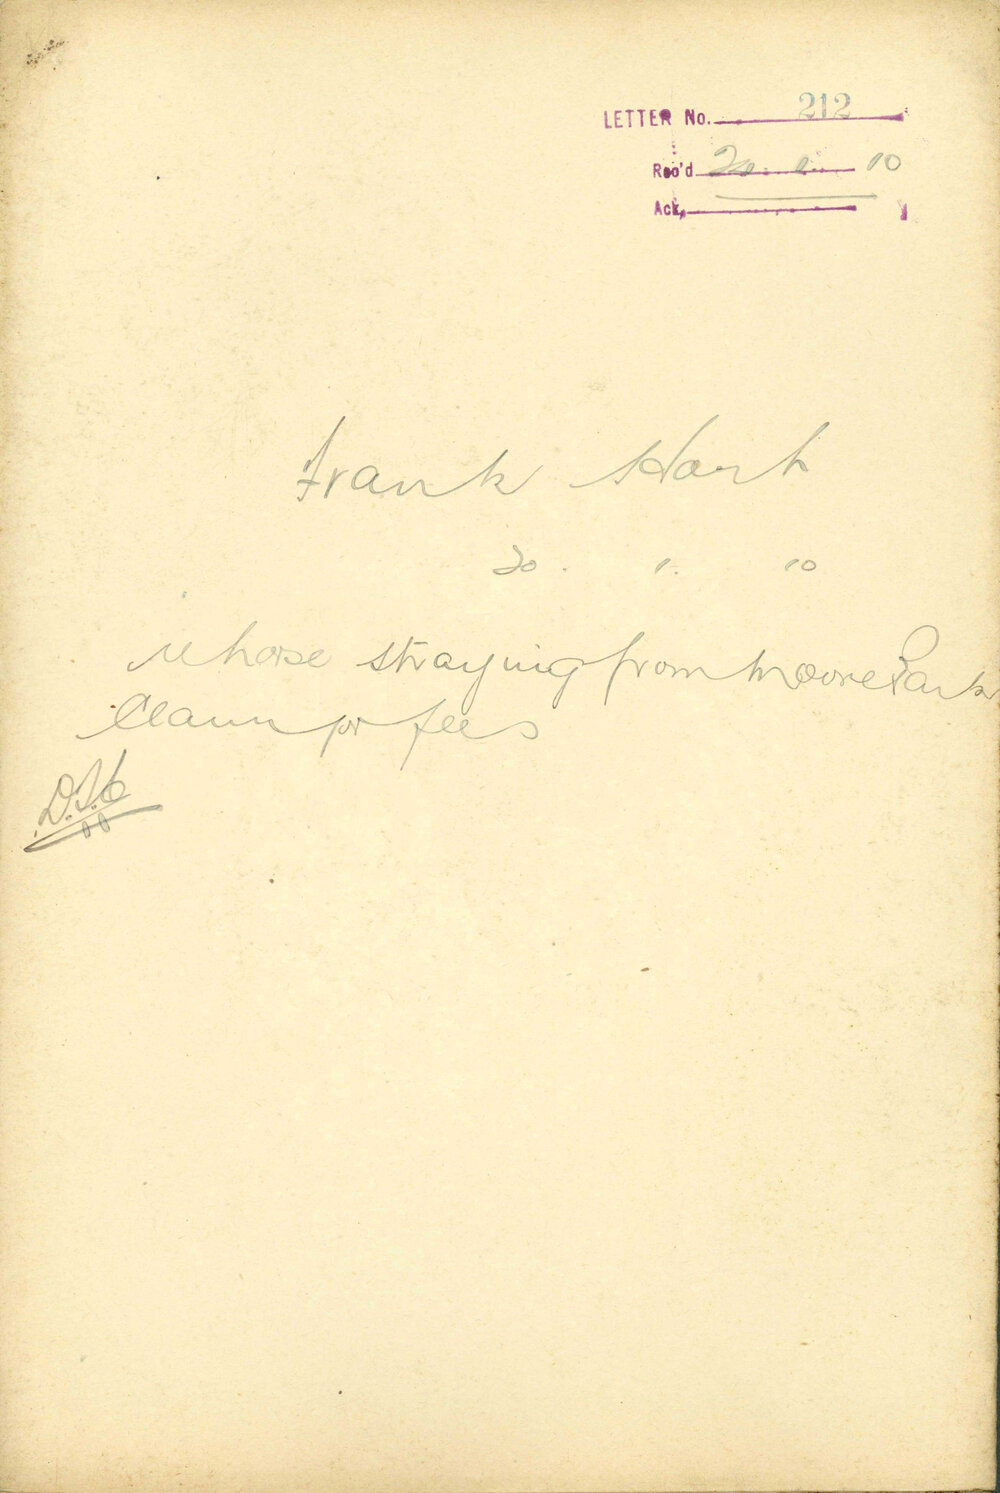 LETTER No. 212
Rec'd 20. 1. 10
Ack,
Frank Hart
20. 1. 10
re horse straying from Moore Park
Claim for fees